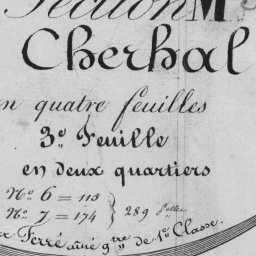 Section M
Cherhal
en quatre feuilles
3.e Feuille
en deux quartiers
No. 6 = 115
No. 7 = 174 } 289 p.elles
Ferré ainé g.tre de 1.e Classe.